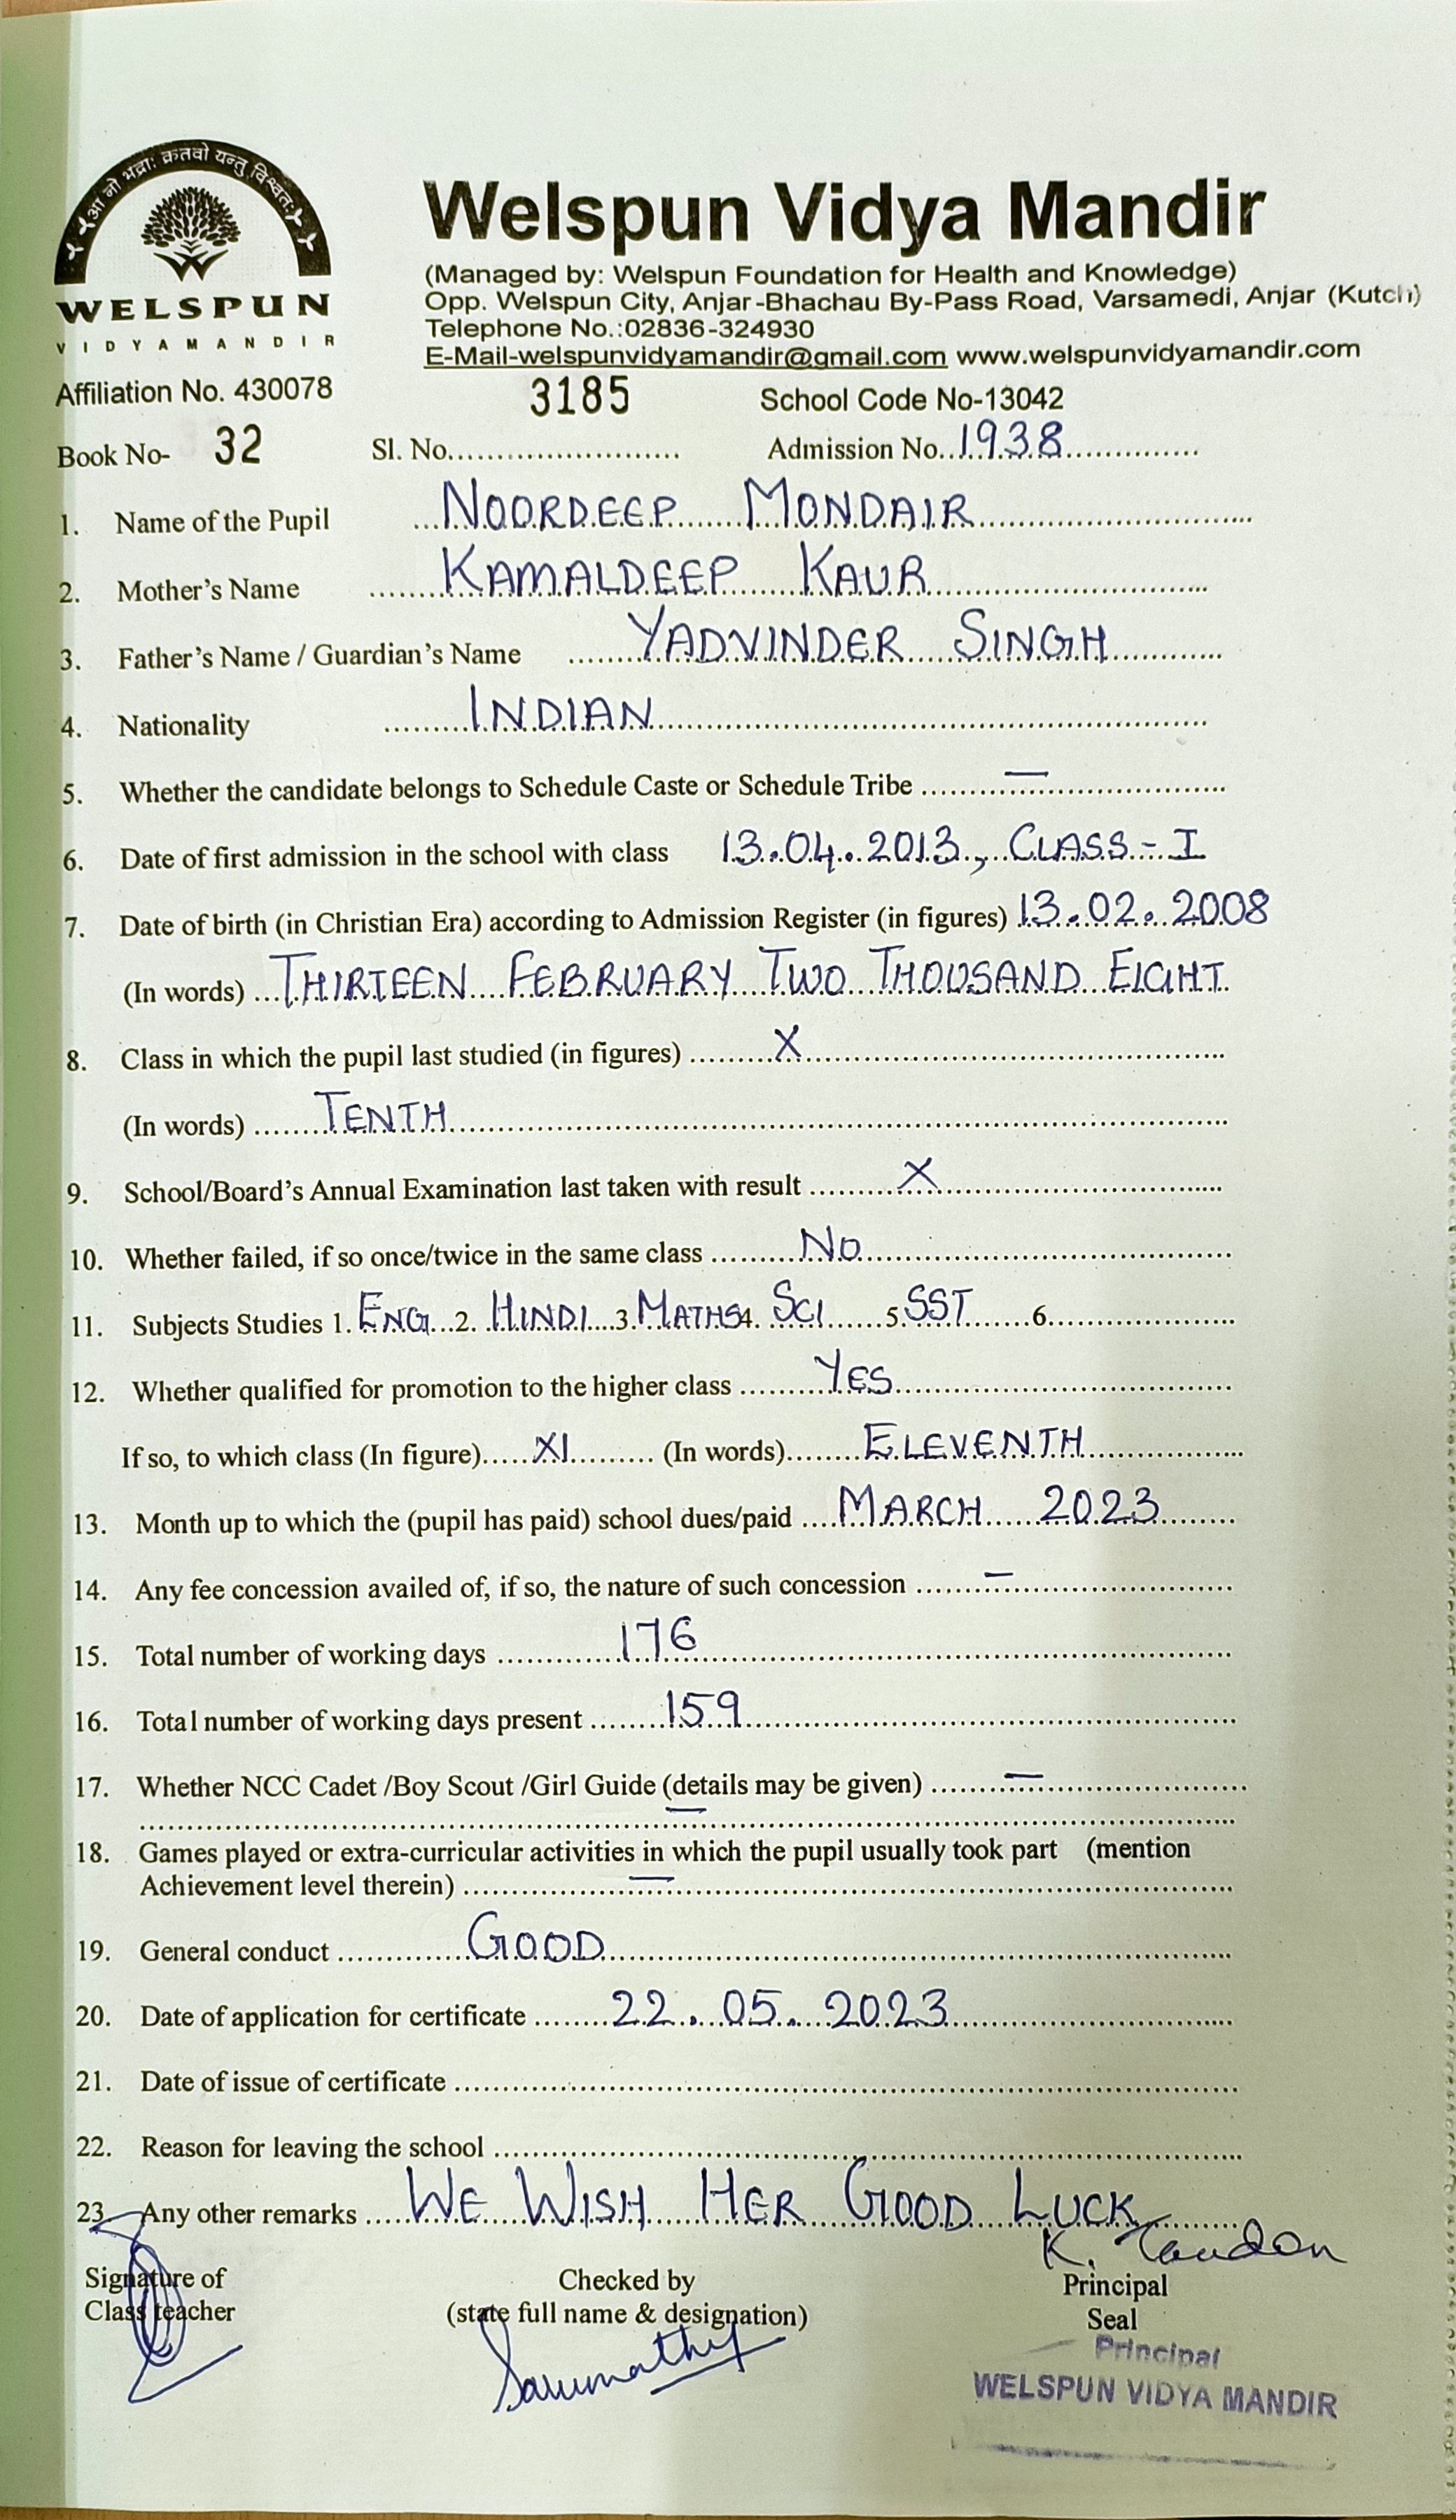 आ नो भद्राः क्रतवो यन्तु विश्वतः
WELSPUN
VIDYAMANDIR
Welspun Vidya Mandir
(Managed by: Welspun Foundation for Health and Knowledge)
Opp. Welspun City, Anjar-Bhachau By-Pass Road, Varsamedi, Anjar (Kutch)
Telephone No.:02836-324930
E-Mail-welspunvidyamandir@gmail.com www.welspunvidyamandir.com
Affiliation No. 430078 3185 School Code No-13042
Book No- 32 Sl. No........................ Admission No..1938..............
1. Name of the Pupil ...NOORDEEP MONDAIR
2. Mother's Name KAMALDEEP KAUR
3. Father's Name / Guardian's Name YADVINDER SINGH
4. Nationality INDIAN
5. Whether the candidate belongs to Schedule Caste or Schedule Tribe —
6. Date of first admission in the school with class 13.04.2013, CLASS - I
7. Date of birth (in Christian Era) according to Admission Register (in figures) 13.02.2008
(In words) THIRTEEN FEBRUARY TWO THOUSAND EIGHT
8. Class in which the pupil last studied (in figures) X
(In words) TENTH
9. School/Board's Annual Examination last taken with result X
10. Whether failed, if so once/twice in the same class No
11. Subjects Studies 1. ENG 2. HINDI 3. MATHS 4. SCI 5. SST 6.
12. Whether qualified for promotion to the higher class YES
If so, to which class (In figure) XI (In words) ELEVENTH
13. Month up to which the (pupil has paid) school dues/paid MARCH 2023
14. Any fee concession availed of, if so, the nature of such concession —
15. Total number of working days 176
16. Total number of working days present 159
17. Whether NCC Cadet /Boy Scout /Girl Guide (details may be given) —
—
18. Games played or extra-curricular activities in which the pupil usually took part (mention
Achievement level therein) —
19. General conduct GOOD
20. Date of application for certificate 22.05.2023
21. Date of issue of certificate
22. Reason for leaving the school
23. Any other remarks WE WISH HER GOOD LUCK
K. Tandon
Signature of Checked by Principal
Class teacher (state full name & designation) Seal
Principal
WELSPUN VIDYA MANDIR